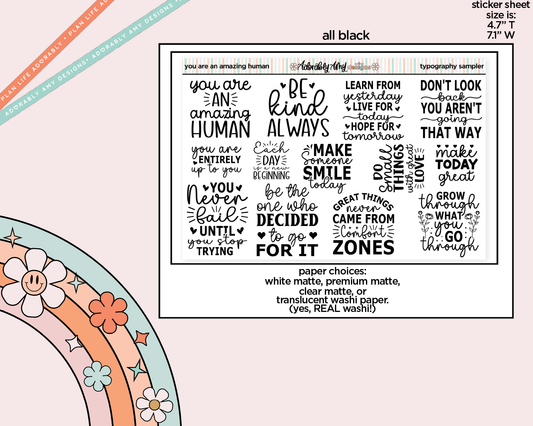 sticker sheet
size is:
4.7" T
7.1" W
PLAN LIFE ADORABLY • PLAN LIFE ADORABLY •
ADORABLY AMY DESIGNS • ADORABLY AMY DESIGNS •
all black
you are an amazing human
Adorably Amy
designs
typography sampler
you are
AN
amazing
HUMAN
BE
kind
ALWAYS
LEARN FROM
yesterday
LIVE FOR
today
HOPE FOR
tomorrow
DON'T LOOK
back
YOU AREN'T
going
THAT WAY
you are
ENTIRELY
up to you
Each
DAY
is a new
BEGINNING
MAKE
someone
SMILE
today
DO
small
THINGS
with great
LOVE
make
TODAY
great
YOU
Never
fail
UNTIL
you stop
TRYING
be the
one who
DECIDED
to go
FOR IT
GREAT THINGS
never
CAME FROM
Comfort
ZONES
GROW
through
WHAT
you
GO
through
paper choices:
white matte, premium matte,
clear matte, or
translucent washi paper.
(yes, REAL washi!)